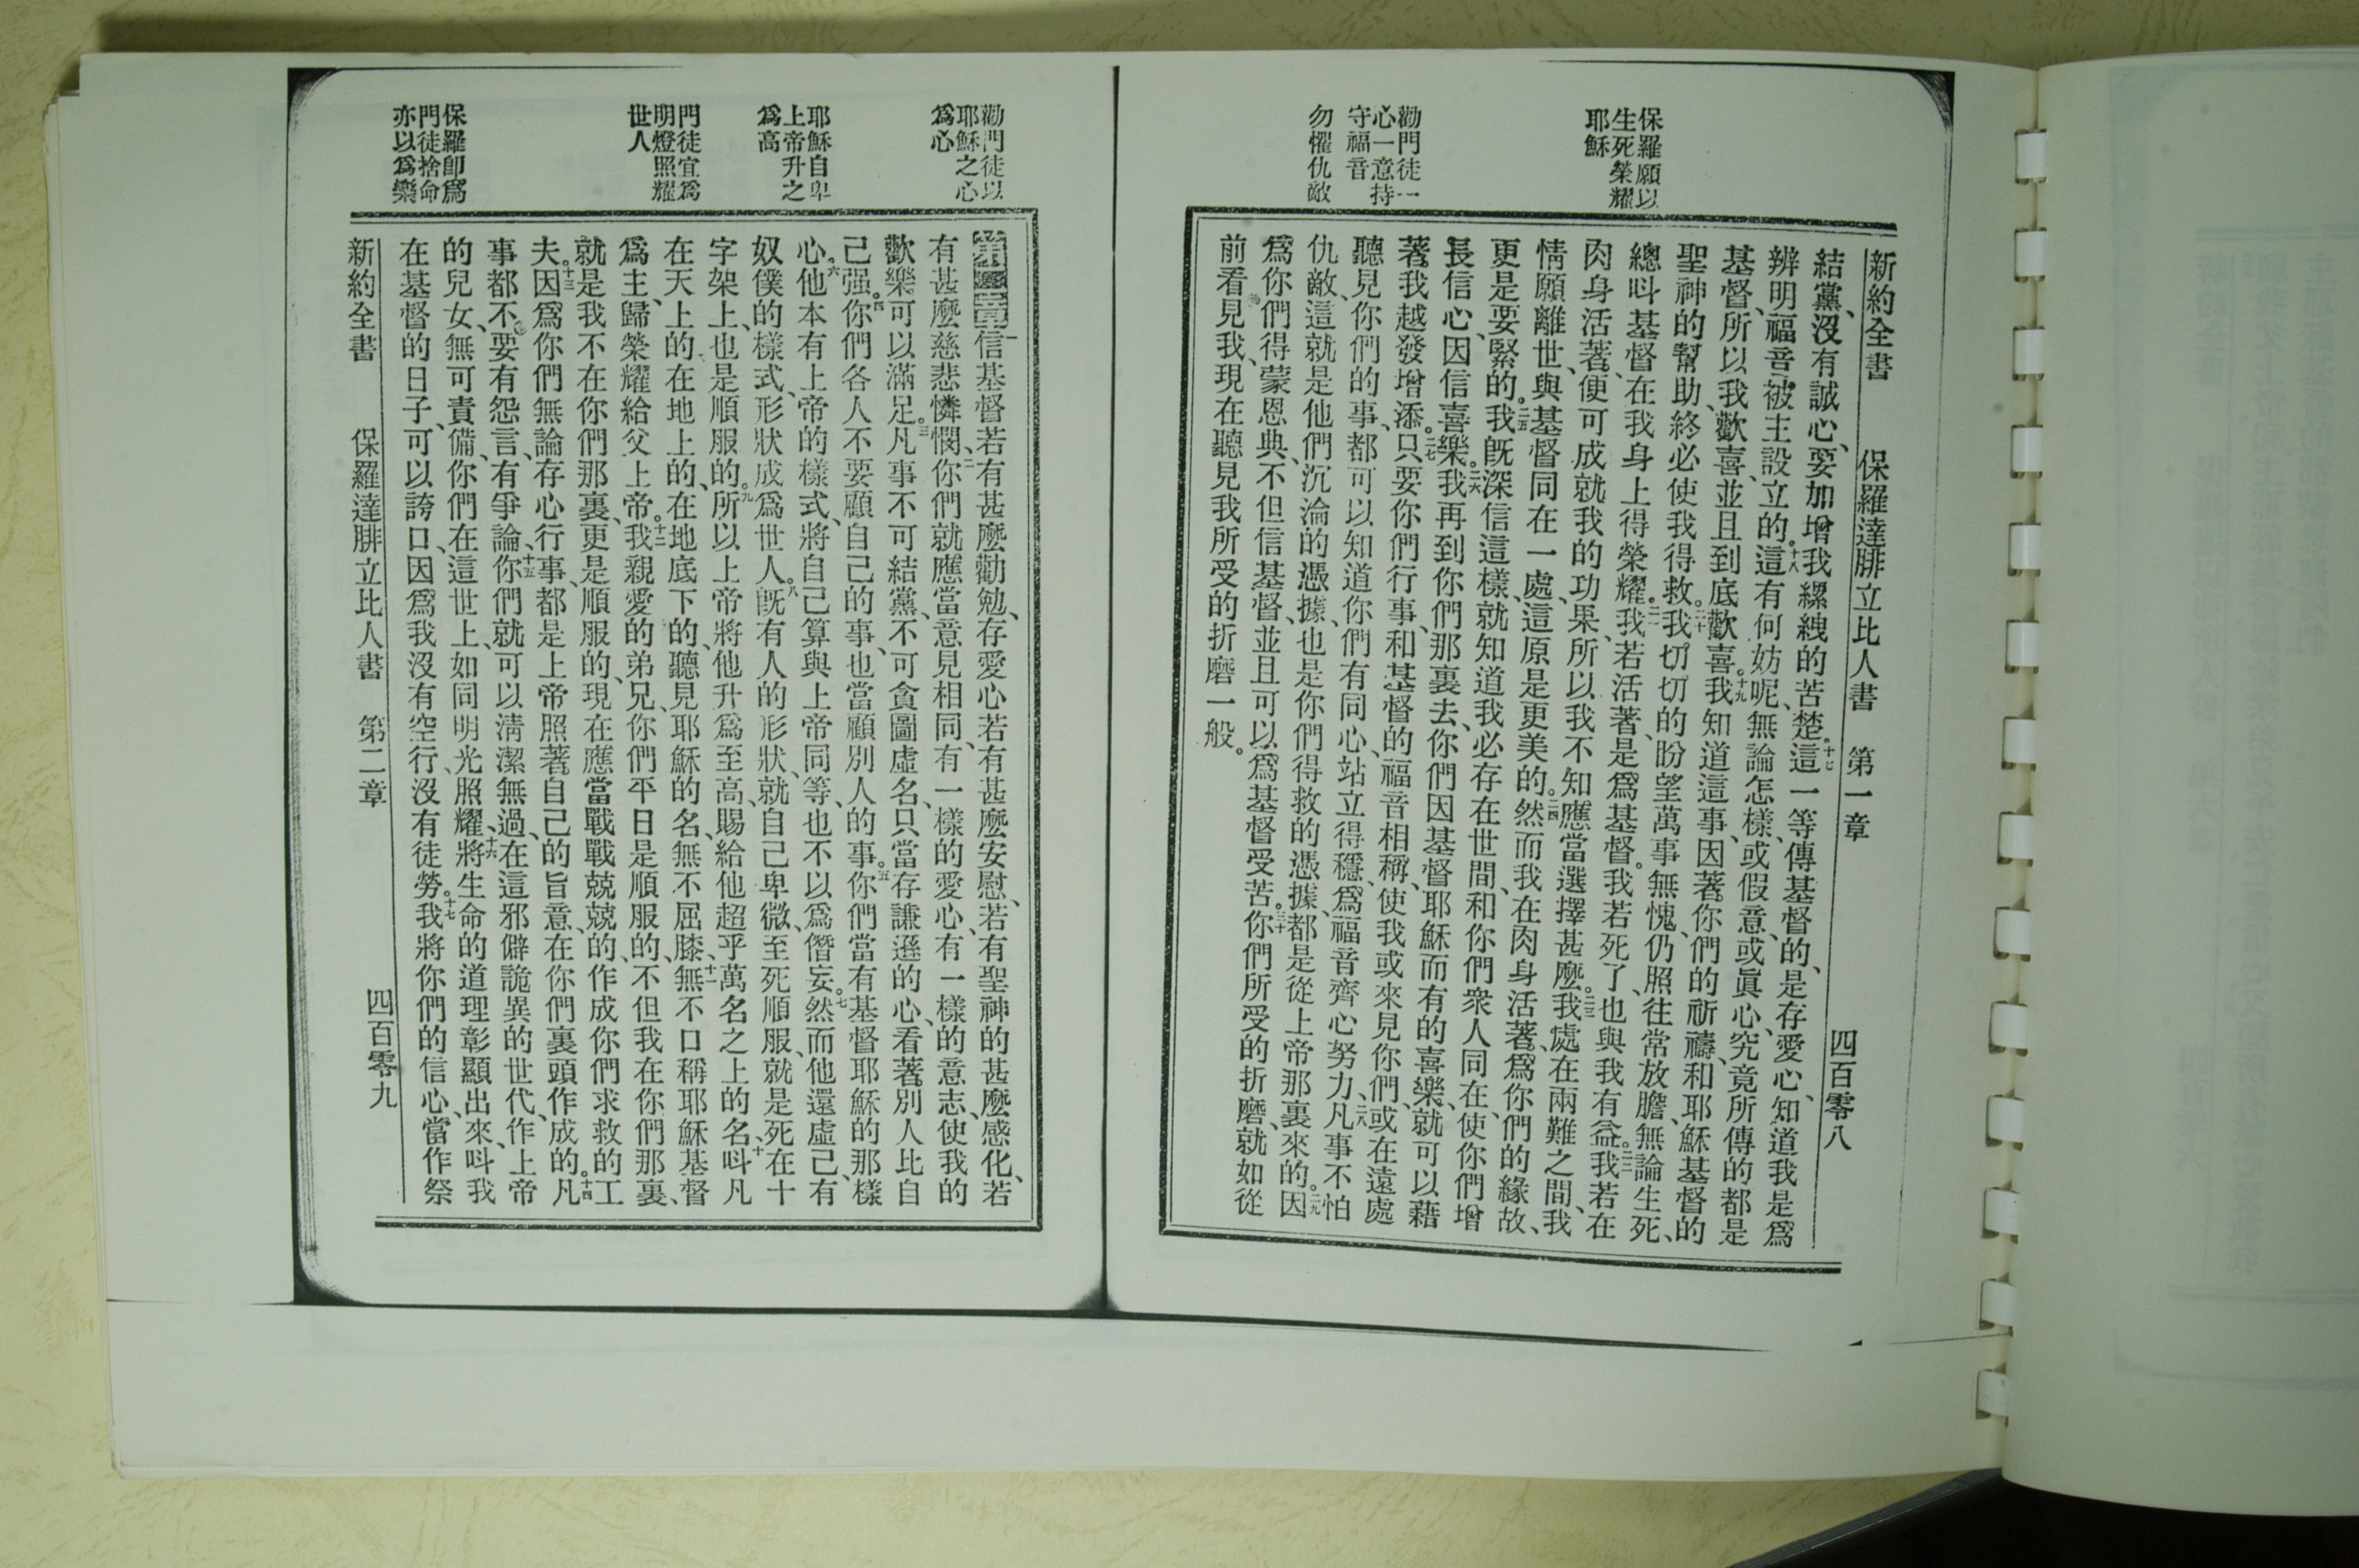 新約全書 保羅達腓立比人書 第一章 四百零八
保羅願以
生死榮耀
耶穌
勸門徒一
心一意持
守福音
勿懼仇敵
結黨、沒有誠心、要加增我縲絏的苦楚。十七這一等傳基督的、是存愛心、知道我是爲
辨明福音、被主設立的。十八這有何妨呢、無論怎樣、或假意、或眞心、究竟所傳的都是
基督、所以我歡喜、並且到底歡喜。十九我知道這事、因著你們的祈禱、和耶穌基督的
聖神的幫助、終必使我得救。二十我切切的盼望萬事無愧、仍照往常放膽、無論生死、
總呌基督在我身上得榮耀。二一我若活著、是爲基督。我若死了、也與我有益。二二我若在
肉身活著、便可成就我的功果、所以我不知應當選擇甚麼。二三我處在兩難之間、我
情願離世、與基督同在一處、這原是更美的。二四然而我在肉身活著、爲你們的緣故、
更是要緊的。二五我旣深信這樣、就知道我必存在世間、和你們衆人同在、使你們增
長信心、因信喜樂。二六我再到你們那裏去、你們因基督耶穌而有的喜樂、就可以藉
著我越發增添。二七只要你們行事、和基督的福音相稱、使我或來見你們、或在遠處
聽見你們的事、都可以知道你們有同心、站立得穩、爲福音齊心努力、二八凡事不怕
仇敵、這就是他們沉淪的憑據、也是你們得救的憑據、都是從上帝那裏來的。二九因
爲你們得蒙恩典、不但信基督、並且可以爲基督受苦。三十你們所受的折磨、就如從
前看見我、現在聽見我所受的折磨一般。
勸門徒以
耶穌之心
爲心
耶穌自卑
上帝升之
爲高
門徒宜爲
明燈照耀
世人
保羅卽爲
門徒捨命
亦以爲樂
第二章一信基督若有甚麼勸勉、存愛心若有甚麼安慰、若有聖神的甚麼感化、若
有甚麼慈悲憐憫、二你們就應當意見相同、有一樣的愛心、有一樣的意志、使我的
歡樂可以滿足。三凡事不可結黨、不可貪圖虛名、只當存謙遜的心、看著別人比自
己强。四你們各人不要顧自己的事、也當顧別人的事。五你們當有基督耶穌的那樣
心。六他本有上帝的樣式、將自己算與上帝同等、也不以爲僭妄。七然而他還虛己、有
奴僕的樣式、形狀成爲世人。八旣有人的形狀、就自己卑微、至死順服、就是死在十
字架上、也是順服的。九所以上帝將他升爲至高、賜給他超乎萬名之上的名、十呌凡
在天上的在地上的、在地底下的、聽見耶穌的名、無不屈膝、十一無不口稱耶穌基督
爲主、歸榮耀給父上帝。十二我親愛的弟兄、你們平日是順服的、不但我在你們那裏、
就是我不在你們那裏、更是順服的、現在應當戰戰兢兢的、作成你們求救的工
夫。十三因爲你們無論存心行事、都是上帝照著自己的旨意、在你們裏頭作成的。十四凡
事都不要有怨言、有爭論、十五你們就可以淸潔無過、在這邪僻詭異的世代、作上帝
的兒女、無可責備、你們在這世上、如同明光照耀、十六將生命的道理彰顯出來、呌我
在基督的日子、可以誇口、因爲我沒有空行、沒有徒勞。十七我將你們的信心、當作祭
新約全書 保羅達腓立比人書 第二章 四百零九